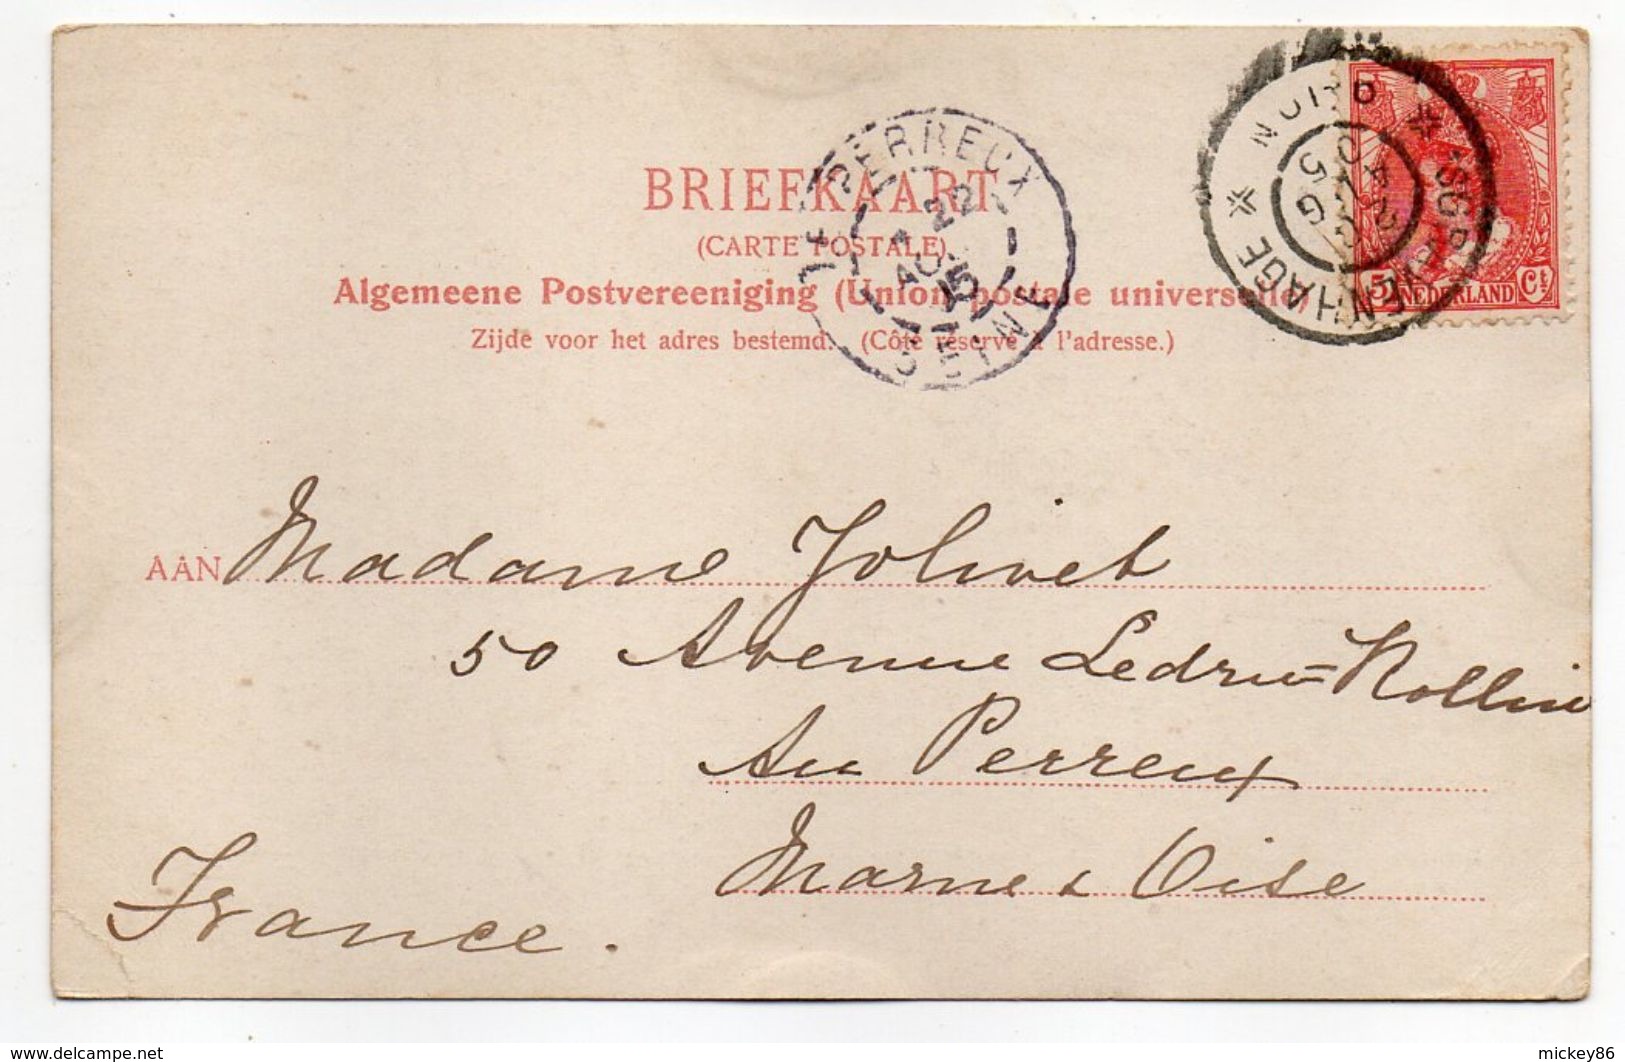 BRIEFKAART
(CARTE POSTALE)
Algemeene Postvereeniging (Union postale universelle)
Zijde voor het adres bestemd. (Côté réservé à l'adresse.)
LE PERREUX
22
SEINE
NEDERLAND
5 Ct
AAN Madame Jolivet
50 Avenue Ledru=Rollin
Au Perreux
Marne & Oise
France.
delcampe.net
mickey86